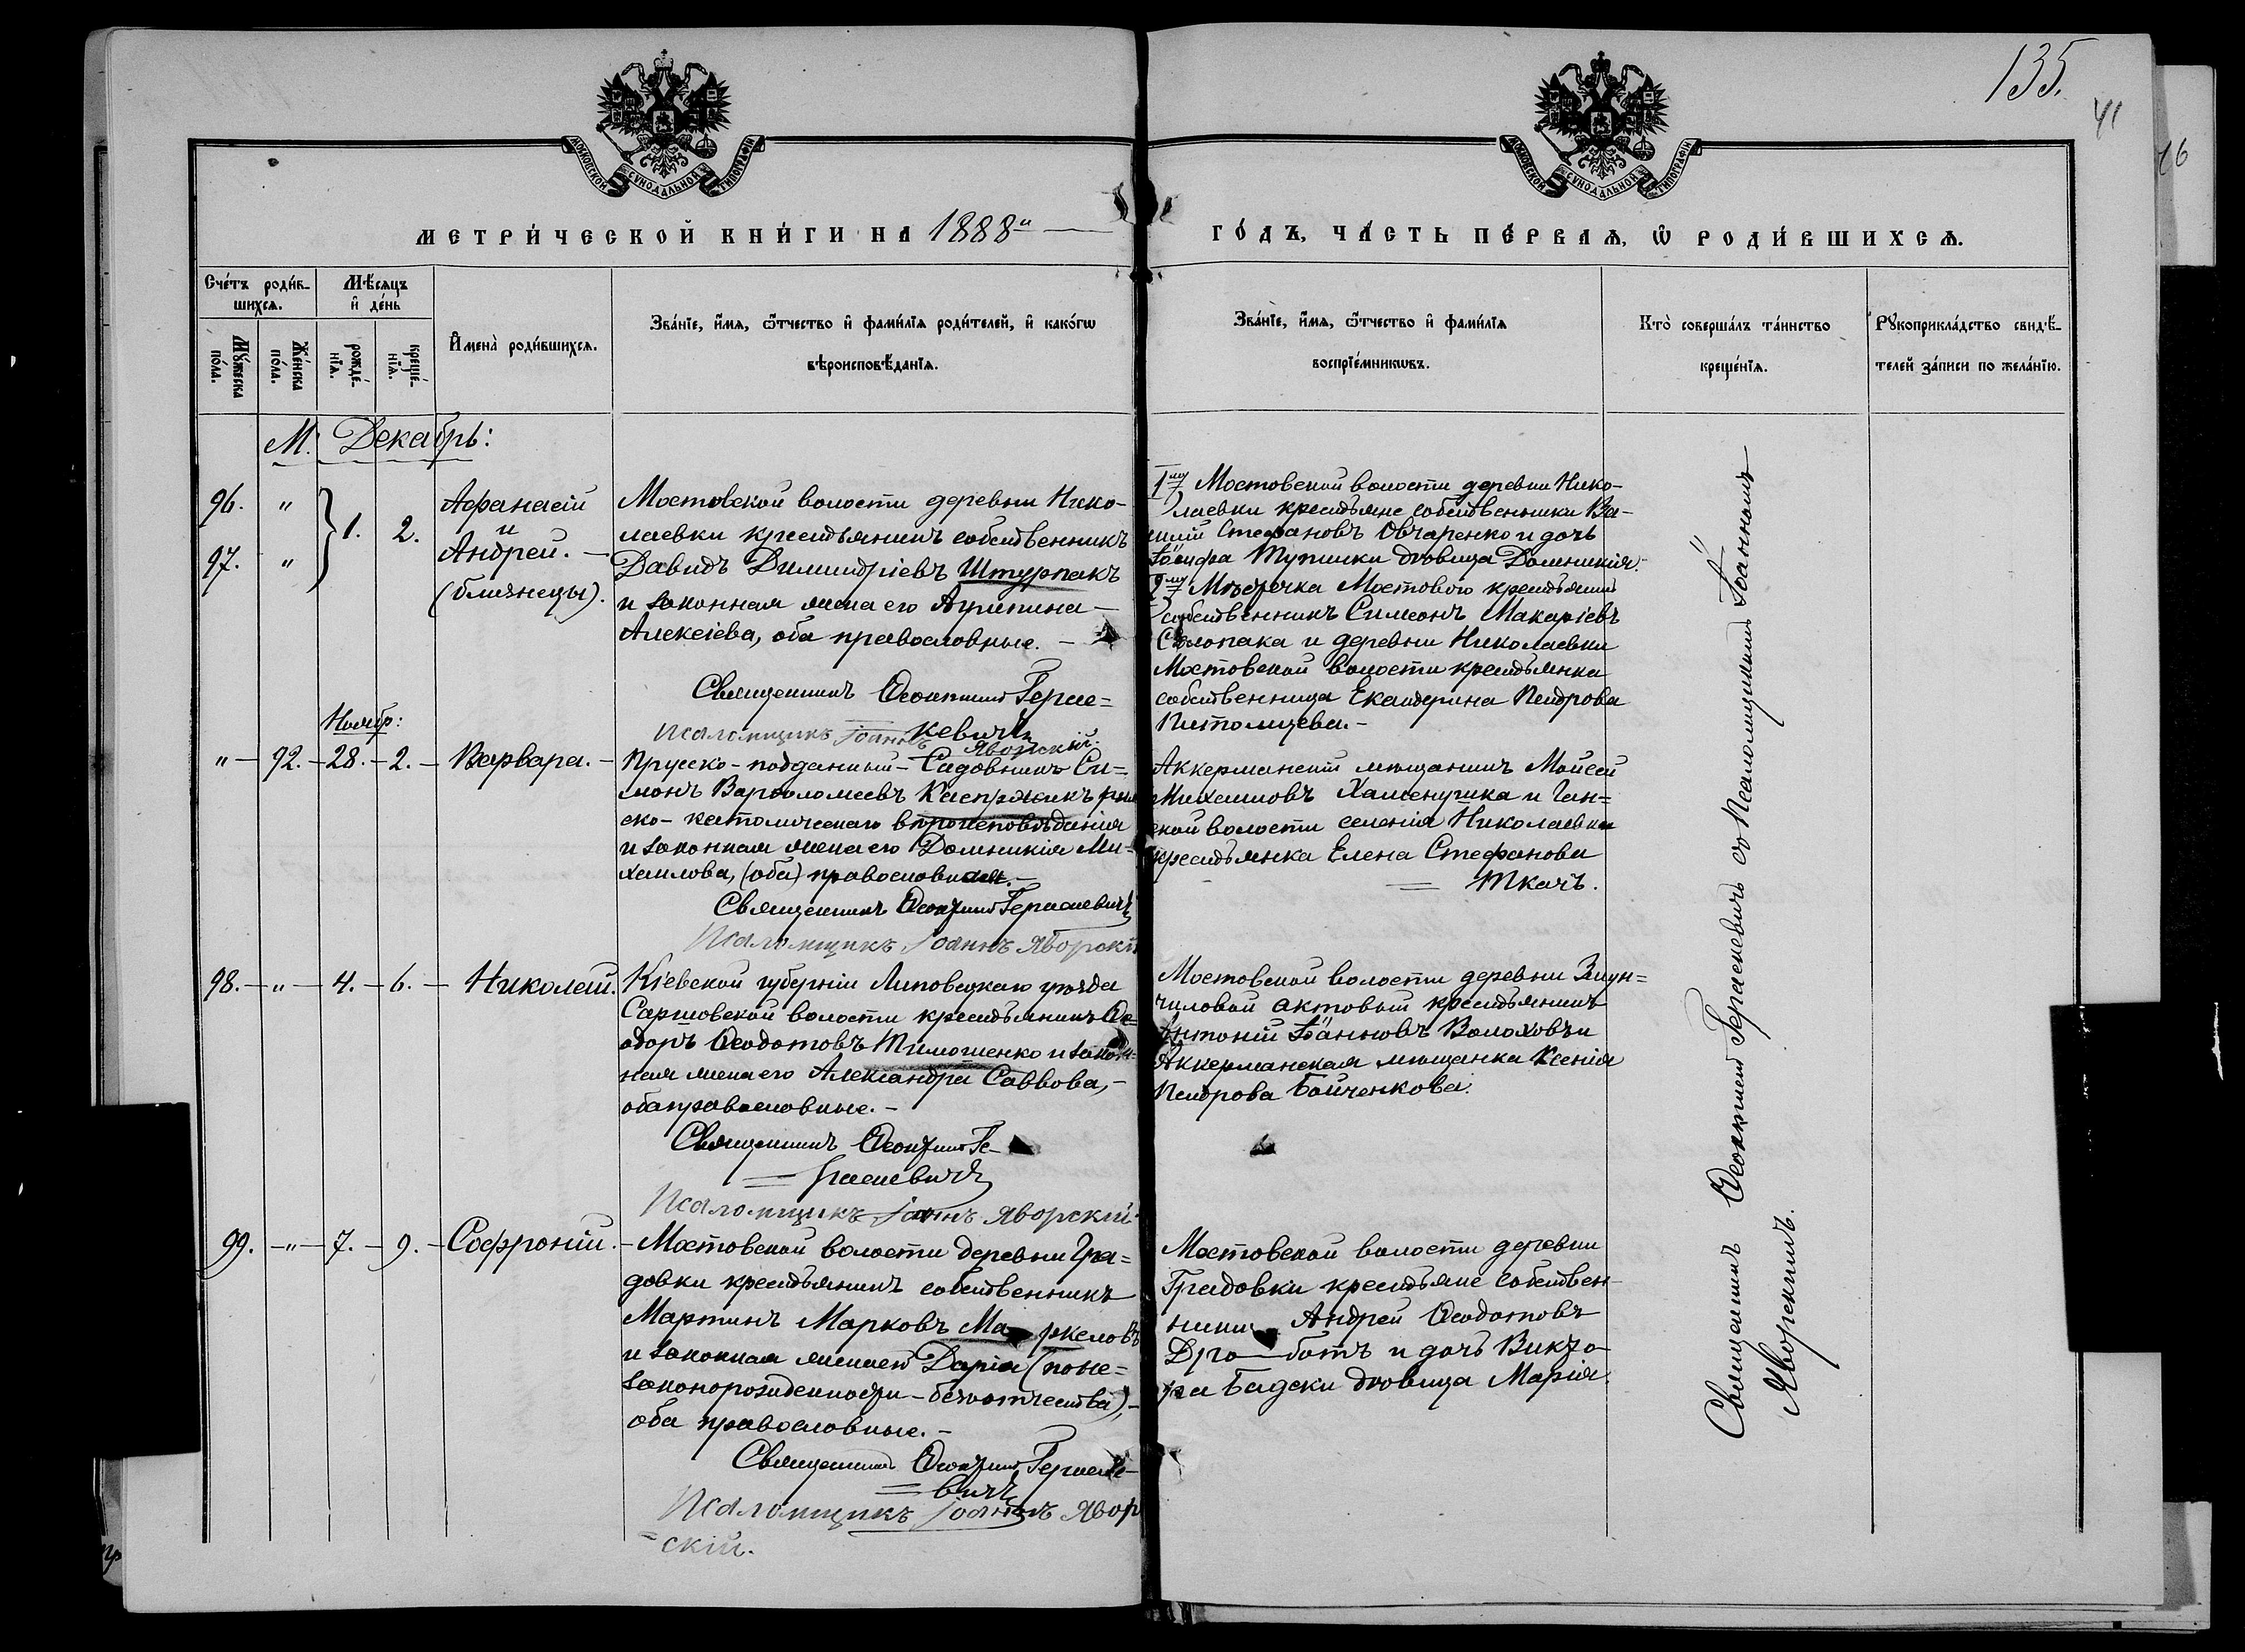 135.
41
16
МОСКОВСКОЙ СѴНОДАЛЬНОЙ ТИПОГРАФІИ
МОСКОВСКОЙ СѴНОДАЛЬНОЙ ТИПОГРАФІИ
МЕТРИ́ЧЕСКОЙ КНИ́ГИ НА 1888й
ГО́ДЪ, ЧА́СТЬ ПЕ́РВАѦ, Ѡ҆ РОДИ́ВШИХСѦ.
Сче́тъ роди́в-
шихсѧ.
Мꙋ́жеска по́ла.
Же́нска по́ла.
Мѣ́сѧцъ
и҆ де́нь
рожде́-
нїѧ.
креще́-
нїѧ.
И҆мена̀ роди́вшихсѧ.
Зва́нїе, и҆́мѧ, ѻ҆́тчество и҆ фами́лїѧ роди́телей, и҆ како́гѡ
вѣроисповѣ́данїѧ.
Зва́нїе, и҆́мѧ, ѻ҆́тчество и҆ фами́лїѧ
воспрїе́мникѡвъ.
Кто̀ соверша́лъ та́инство
креще́нїѧ.
Рꙋкоприкла́дство свидѣ́-
телей за́писи по жела́нїю.
М. Декабрь:
96. " 1. 2.
97. "
Афанасій
и
Андрей. –
(близнецы).
Мостовской волости деревни Нико-
лаевки крестьянинъ собственникъ
Давидъ Димитріевъ Штурпакъ
и законная жена его Агрипина –
Алексіева, оба православные. –
Священникъ Ѳеоктистъ Гера-
кевичъ
Псаломщикъ Іоаннъ Яворскій.
1му Мостовской волости деревни Нико-
лаевки крестьяне собственники Ва-
силій Стефановъ Овчаренко и дочь
Іосифа Тупишки девица Домникія.
2му Местечка Мостового крестьянинъ
собственникъ Симеонъ Макаріевъ
Солопака и деревни Николаевки
Мостовской волости крестьянка
собственница Екатерина Петрова
Ноябр:
" – 92. – 28. – 2. – Варвара. –
Прусско-подданный – Садовникъ Си-
монъ Варфоломеевъ Каспржикъ рим
ско-католическаго вероисповѣданія
и законная жена его Домникія Ми-
хаилова, (оба) православная. –
Священникъ Ѳеоктистъ Герасиевичъ
Псаломщикъ Іоаннъ Яворскій
Аккерманскій мещанинъ Мойсей
Михаиловъ Хаменушка и Ган-
ской волости селенія Николаевка
крестьянка Елена Стефанова
Ткачъ.
98. – " – 4. – 6. – Николай.
Кіевской губерніи Липовецкаго уѣзда
волости крестьянинъ Ѳе-
одоръ Ѳеодотовъ Тимошенко и закон-
ная жена его Александра Саввова, –
оба православные. –
Священникъ Ѳеоктистъ Ге-
расиевичъ
Псаломщикъ Іоаннъ Яворскій
Мостовской волости деревни Змун-
чиловой актовый крестьянинъ
Антоній Іоанновъ Волоховъ и
Аккерманская мещанка Ксенія
Петрова Бойченкова.
99. – " – 7. – 9. – Софроній. –
Мостовской волости деревни Гра-
довки крестьянинъ собственникъ
Мартинъ Марковъ Маркеловъ
и законная жена его Дарія (по не-
законорожденности – безъ отчества), –
оба православные. –
Священникъ Ѳеоктистъ Герасие-
вичъ
Псаломщикъ Іоаннъ Явор
скій.
Мостовской волости деревни
Градовки крестьяне собствен-
ники Андрей Ѳеодотовъ
и дочь Викто-
ра Бадски девица Марія.
Священникъ Ѳеоктистъ Герасиевичъ съ Псаломщикомъ Іоанномъ
Яворскимъ.